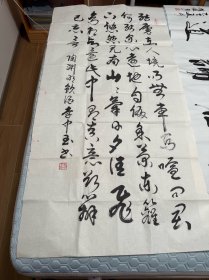 结廬在人境而無車馬喧問君
何能尔心遠地自偏采菊東籬
下悠然見南山山氣日夕佳飛
鳥相与還此中有真意欲辯
已忘言 陶渊明飲酒 中玉书